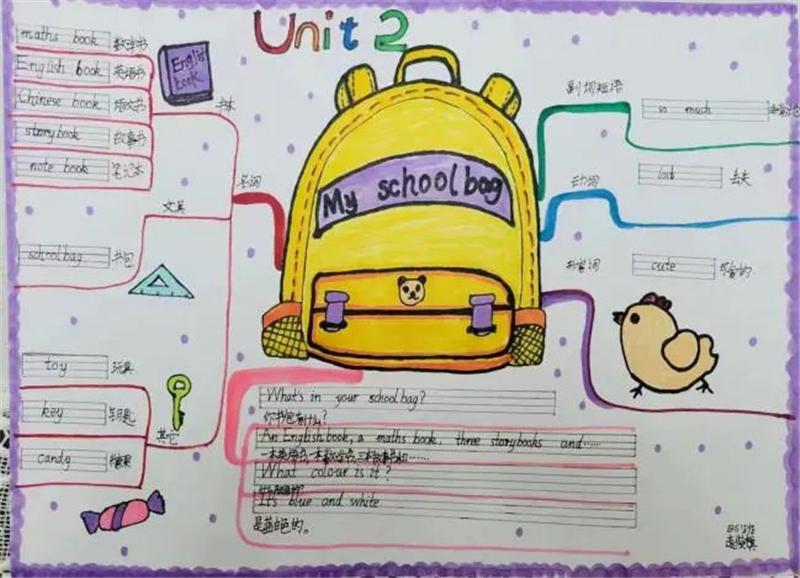 Unit 2
My schoolbag
English book
maths book 数学书
English book 英语书
Chinese book 语文书
storybook 故事书
note book 笔记本
书本
文具
schoolbag 书包
名词
toy 玩具
key 钥匙
candy 糖果
其它
副词短语
so much
动词
lost 丢失
形容词
cute 可爱的
What's in your schoolbag?
你书包有什么?
An English book, a maths book, three storybooks and……
一本英语书,一本数学书,三本故事书和……
What colour is it?
It's blue and white
是蓝白色的。